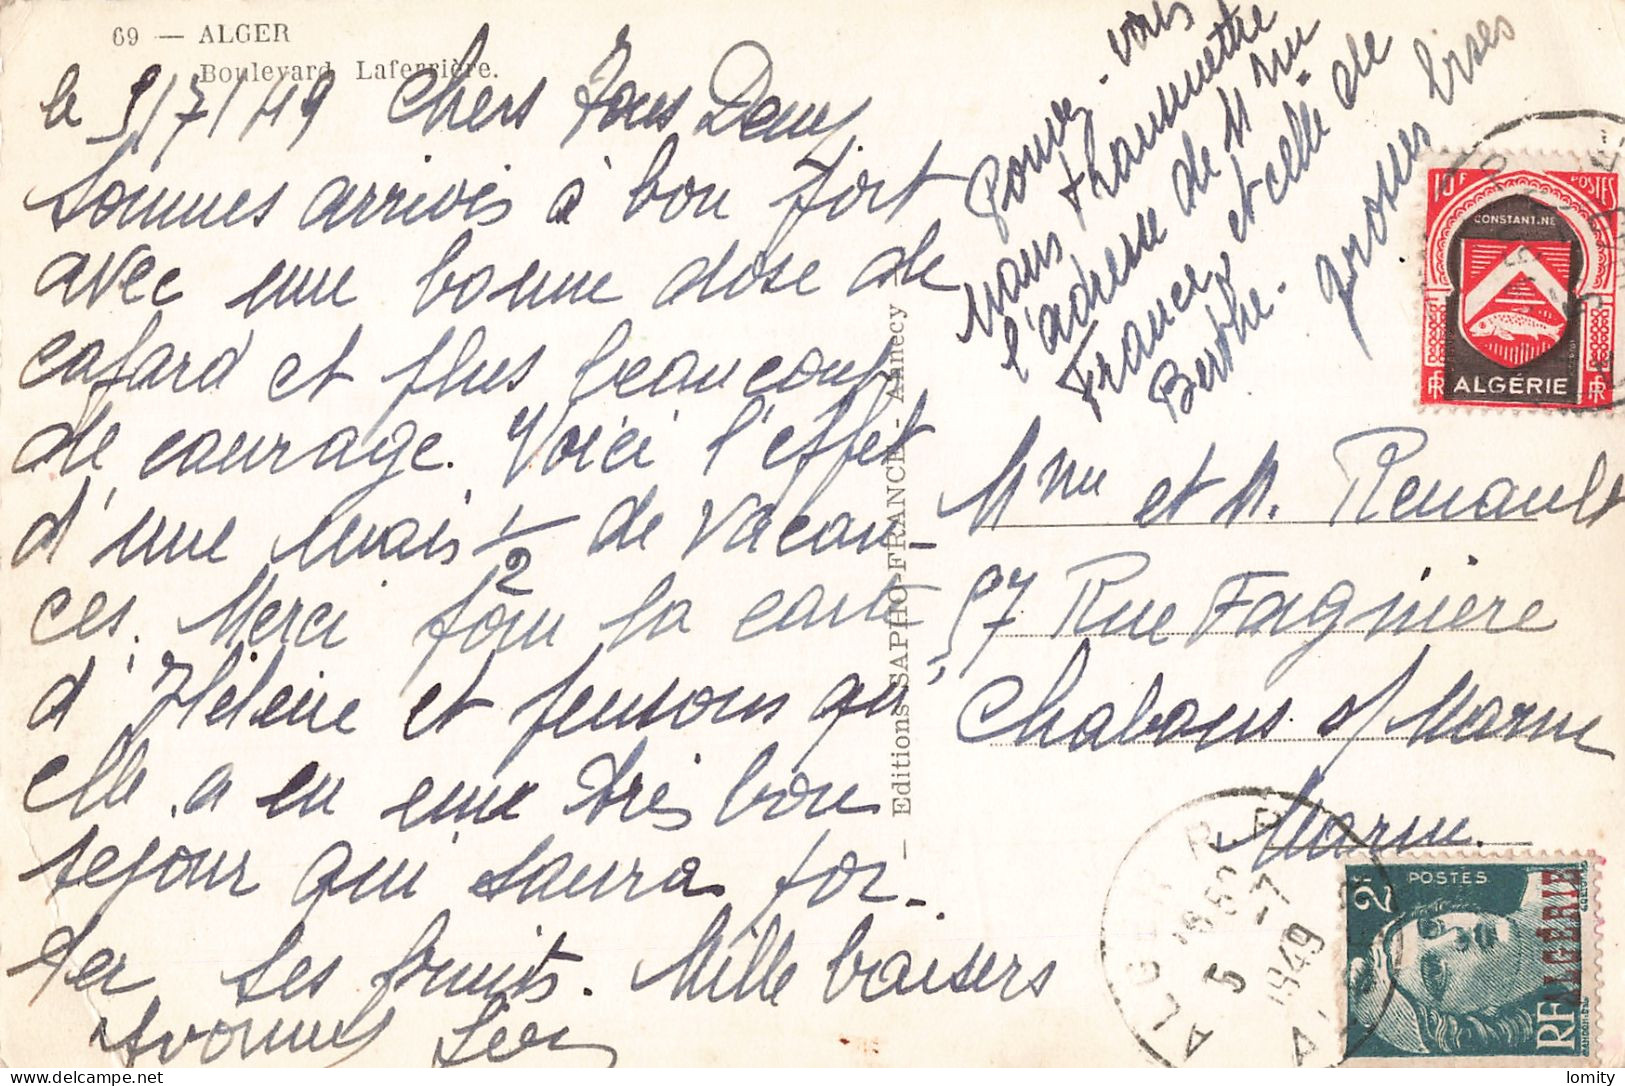 69 — ALGER
Boulevard Laferrière.
le 5/7/49 Chers Tous Deux
Sommes arrivés à bon port
avec une bonne dose de
cafard et plus beaucoup
de courage. Voici l'effet
d'une mois 1/2 de vacan-
ces. Merci pour la carte
d'Hélène et pensons qu'
elle a eu une très bon
séjour qui saura por-
ter ses fruits. Mille baisers
Yvonne Léon
Pouvez-vous
nous transmettre
l'adresse de Mme
France et celle de
Berthe. grosses bises
— Editions SAPHO-FRANCE - Annecy
10F POSTES
CONSTANTINE
RF ALGÉRIE RF
Mme et M. Renault
57 Rue Fagnière
Chalons s/ Marne
Marne.
ALGER R.P.
16 50
5 -7
1949
2F POSTES
ALGÉRIE
RF
lomity